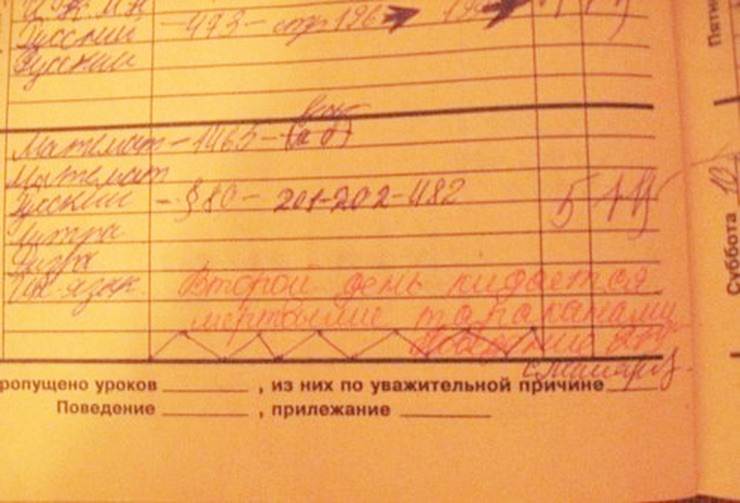 Русский - 493 - стр 196
Русский
Математ - 1465 - (а б)
Математ
Русский - § 80 - 201-202-482 5
Литра
Литра
Ин-язык
Второй день кидается
мертвыми тараканами
ропущено уроков ________ , из них по уважительной причине
Поведение ________ , прилежание ________
Пятн
Суббота 10